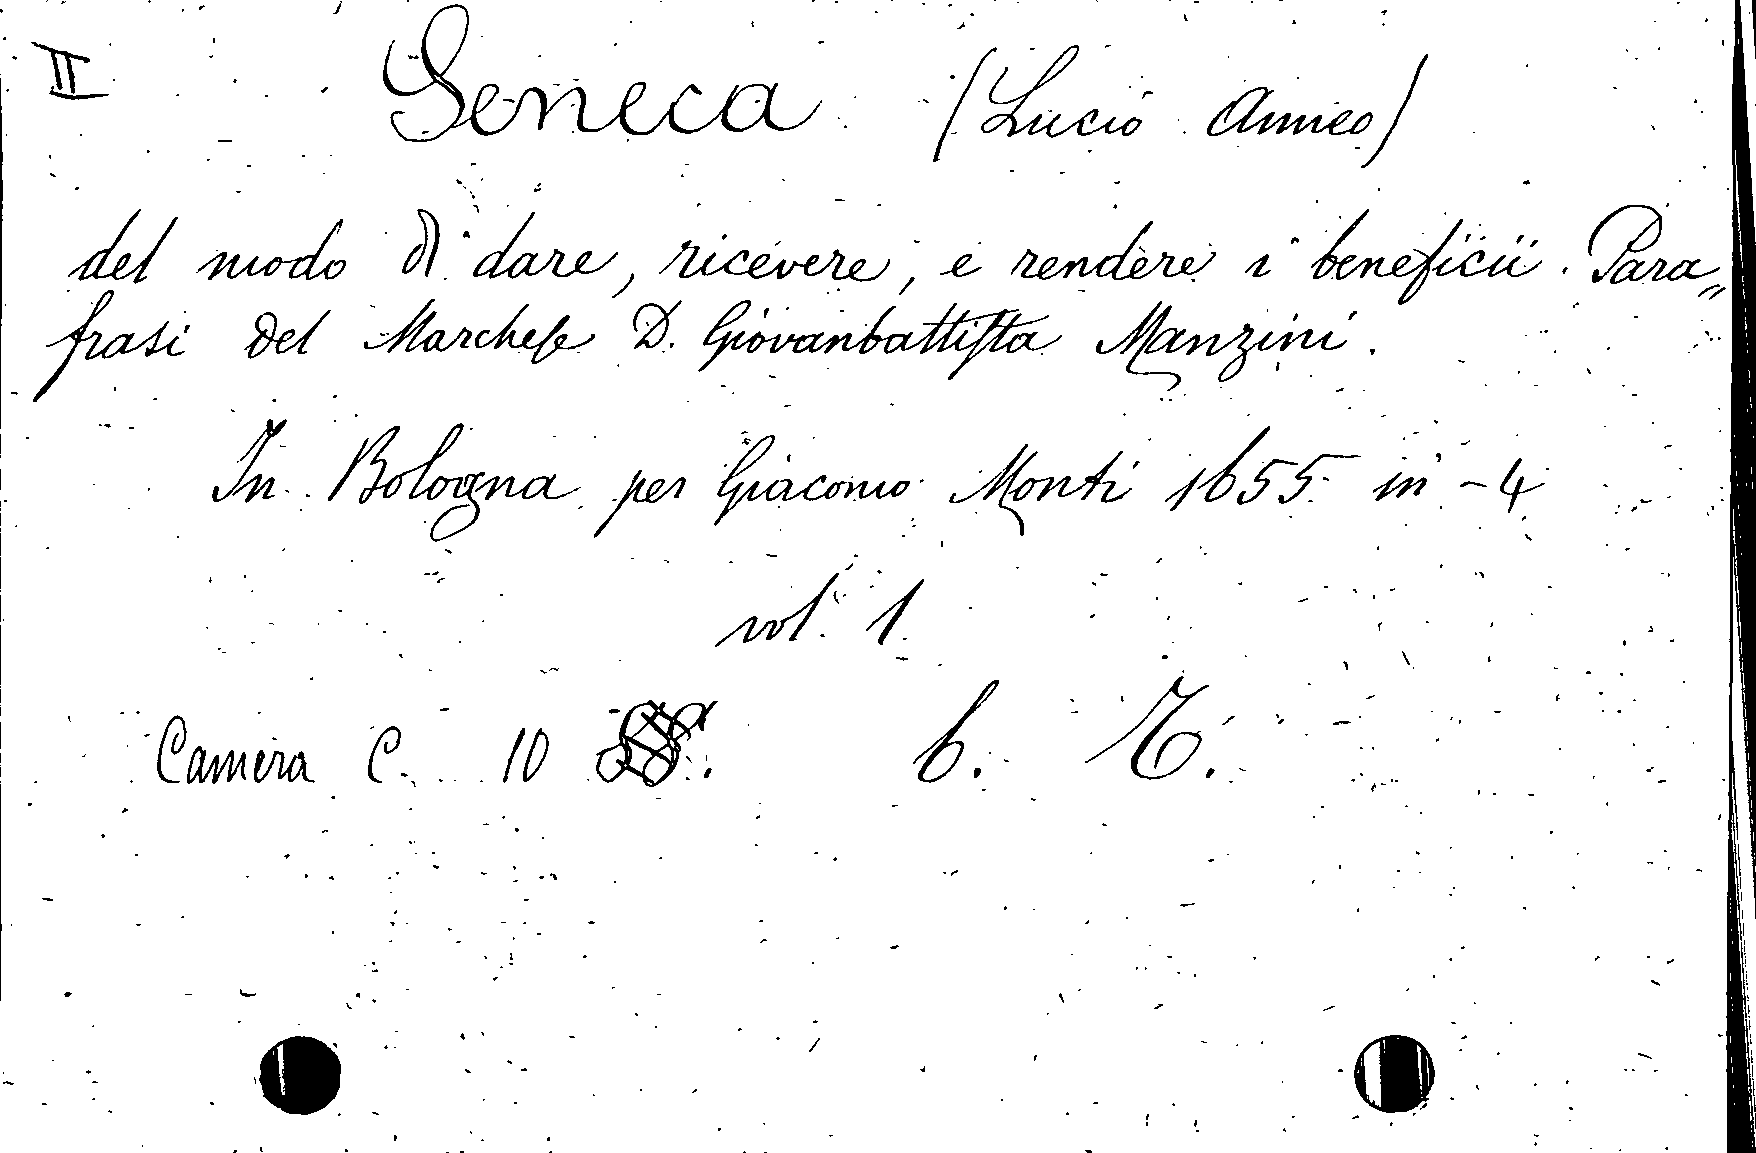 II Seneca (Lucio Anneo)
del modo di dare, ricevere, e rendere i beneficii. Para„
frasi del Marchese D. Giovanbattista Manzini.
In Bologna per Giacomo Monti 1655 in-4
vol. 1
Camera C. 10 b. T.